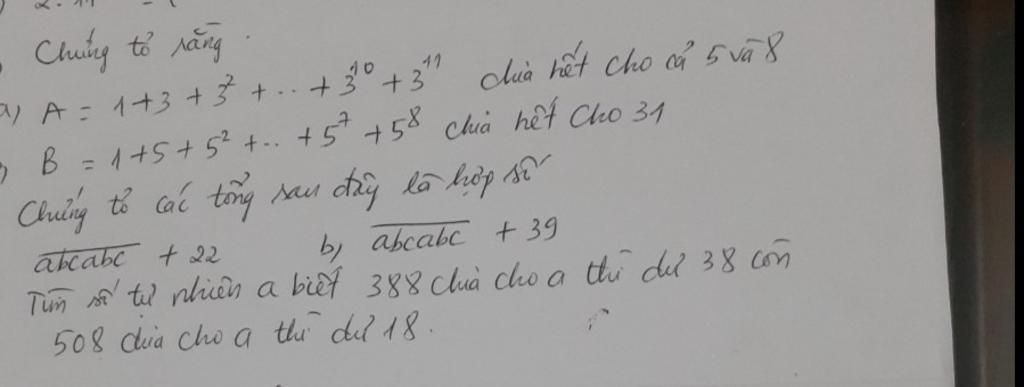 Chứng tỏ rằng.
a) A = 1+3+3² + .. + 3¹⁰ + 3¹¹ chia hết cho cả 5 và 8
) B = 1+5+5² + .. + 5⁷ + 5⁸ chia hết cho 31
Chứng tỏ các tổng sau đây là hợp số
abcabc + 22 b) abcabc + 39
Tìm số tự nhiên a biết 388 chia cho a thì dư 38 còn
508 chia cho a thì dư 18.